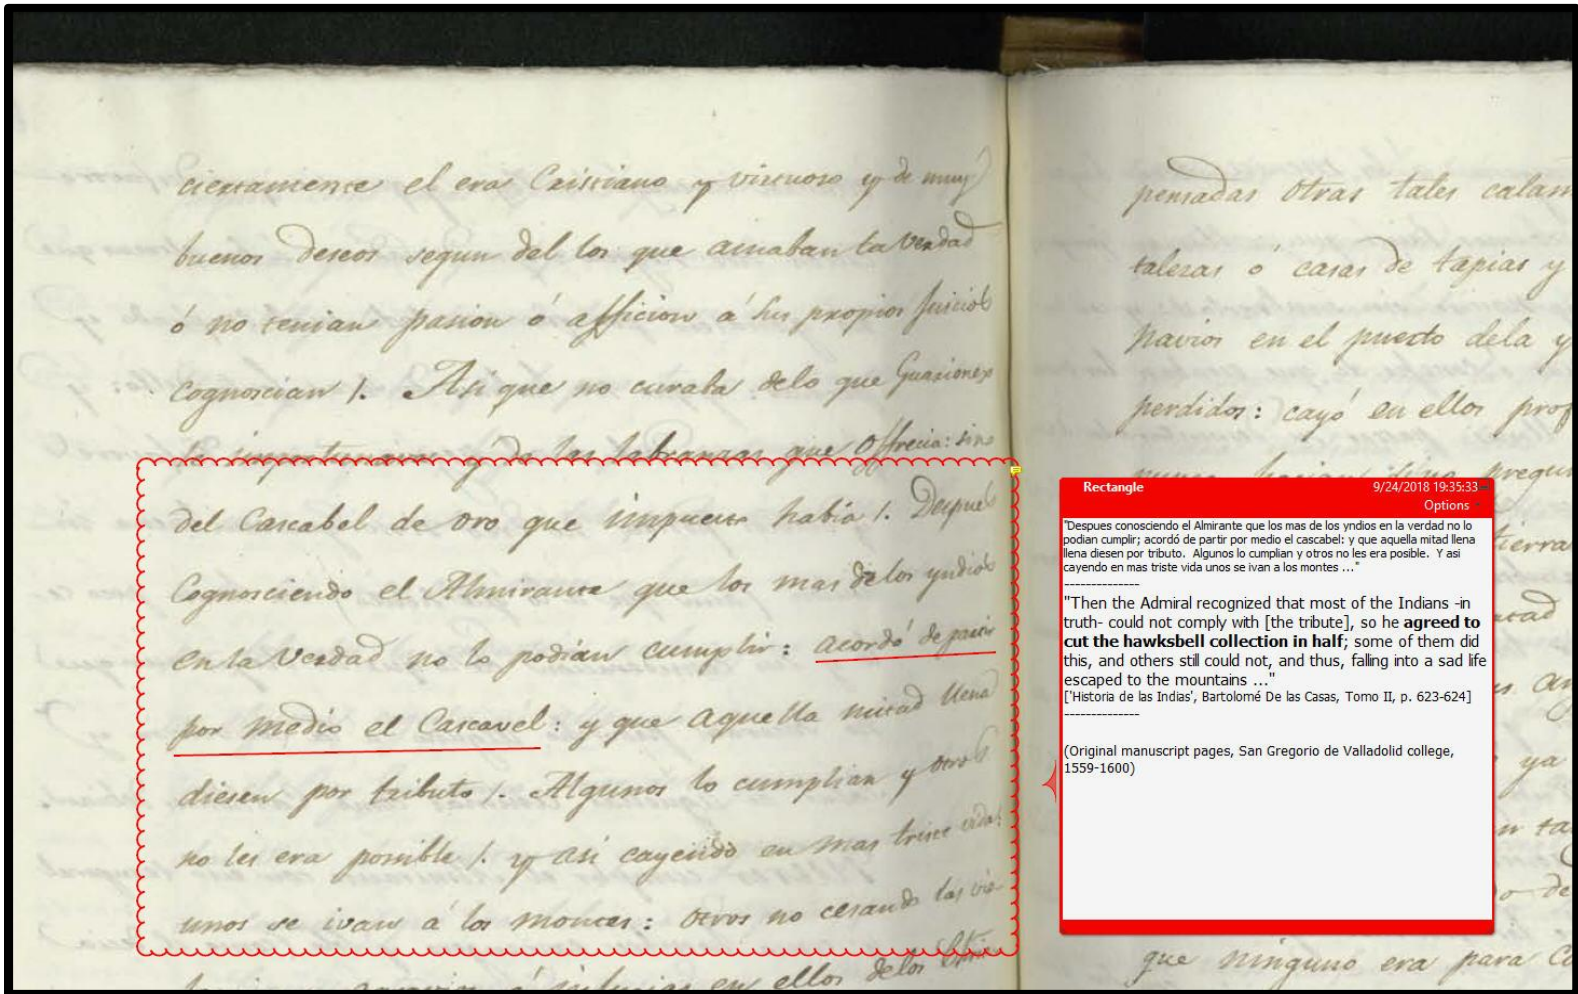 ciertamente el era Cristiano y virtuoso y de muy
buenos deseos segun del los que amaban la verdad
ó no tenian pasion ó afficion á sus propios juicios
cognoscian /. Asi que no curaba delo que Guarionex
le importunava y de las labranzas que offrecia: sino
del Cascabel de oro que impuesto habia /. Despues
Cognosciendo el Almirante que los mas de los yndios
en la verdad no lo podian cumplir: acordó de partir
por medio el Cascavel: y que aquella mitad llena
diesen por tributo /. Algunos lo cumplian y otros
no les era posible /. y asi cayendo en mas triste vida:
unos se ivan á los montes: otros no cesando las vio
en ellos delos
pensadas otras tales calam
talezas ó casas de tapias y
navios en el puerto dela y
perdidos: cayó en ellos prof
nunca hacian sino pregun
tierra
que ninguno era para Co
Rectangle 9/24/2018 19:35:33
Options
"Despues conosciendo el Almirante que los mas de los yndios en la verdad no lo
podian cumplir; acordó de partir por medio el cascabel: y que aquella mitad llena
llena diesen por tributo. Algunos lo cumplian y otros no les era posible. Y asi
cayendo en mas triste vida unos se ivan a los montes ..."
--------------
"Then the Admiral recognized that most of the Indians -in
truth- could not comply with [the tribute], so he agreed to
cut the hawksbell collection in half; some of them did
this, and others still could not, and thus, falling into a sad life
escaped to the mountains ..."
['Historia de las Indias', Bartolomé De las Casas, Tomo II, p. 623-624]
--------------
(Original manuscript pages, San Gregorio de Valladolid college,
1559-1600)